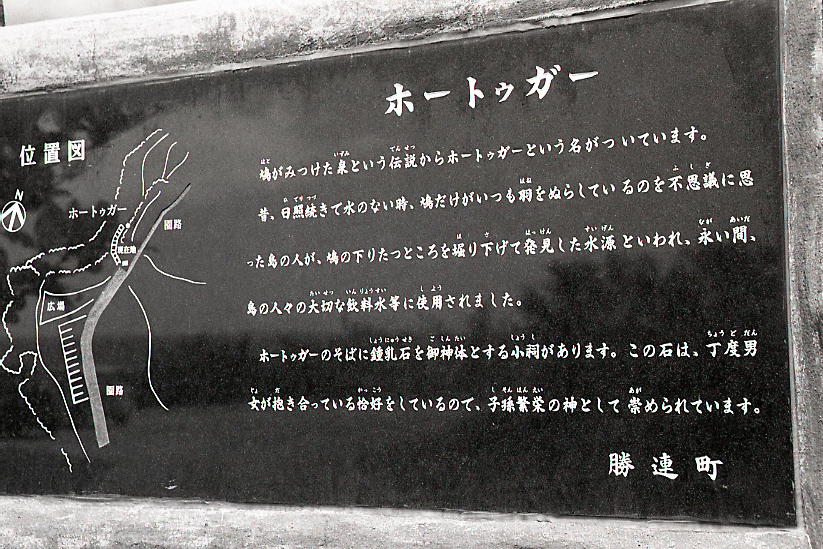 ホートゥガー
鳩がみつけた泉という伝説からホートゥガーという名がついています。
昔、日照続きで水のない時、鳩だけがいつも羽をぬらしているのを不思議に思
った島の人が、鳩の下りたつところを掘り下げて発見した水源といわれ、永い間、
島の人々の大切な飲料水等に使用されました。
ホートゥガーのそばに鍾乳石を御神体とする小祠があります。この石は、丁度男
女が抱き合っている恰好をしているので、子孫繁栄の神として崇められています。
勝連町
位置図
N
ホートゥガー
園路
現在地
広場
園路